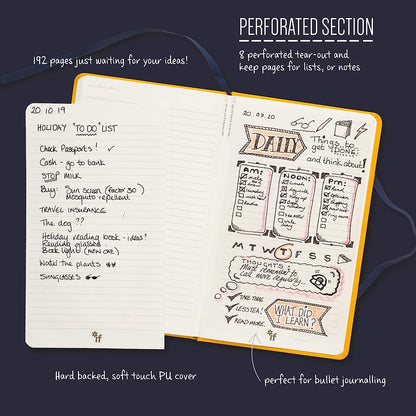 PERFORATED SECTION
192 pages just waiting for your ideas!
8 perforated tear-out and
keep pages for lists, or notes
20.10.19
HOLIDAY "TO DO" LIST
Check Passports! ✓
Cash - go to bank
STOP MILK
Buy: Sun screen (factor 30)
Mosquito repellent
TRAVEL INSURANCE
The dog ??
Holiday reading book - ideas!
Reading glasses
Book light (NEW ONE)
Water the plants
SUNGLASSES
if
20.07.20
DAILY
Things to
get DONE:
and think about!
AM:
NOON:
PM:
M T W T F S S
THOUGHTS
Must remember to
call mum regularly...
✓ LESS TEA!
✓ READ MORE.
WHAT DID
I LEARN?
if
Hard backed, soft touch PU cover
perfect for bullet journalling